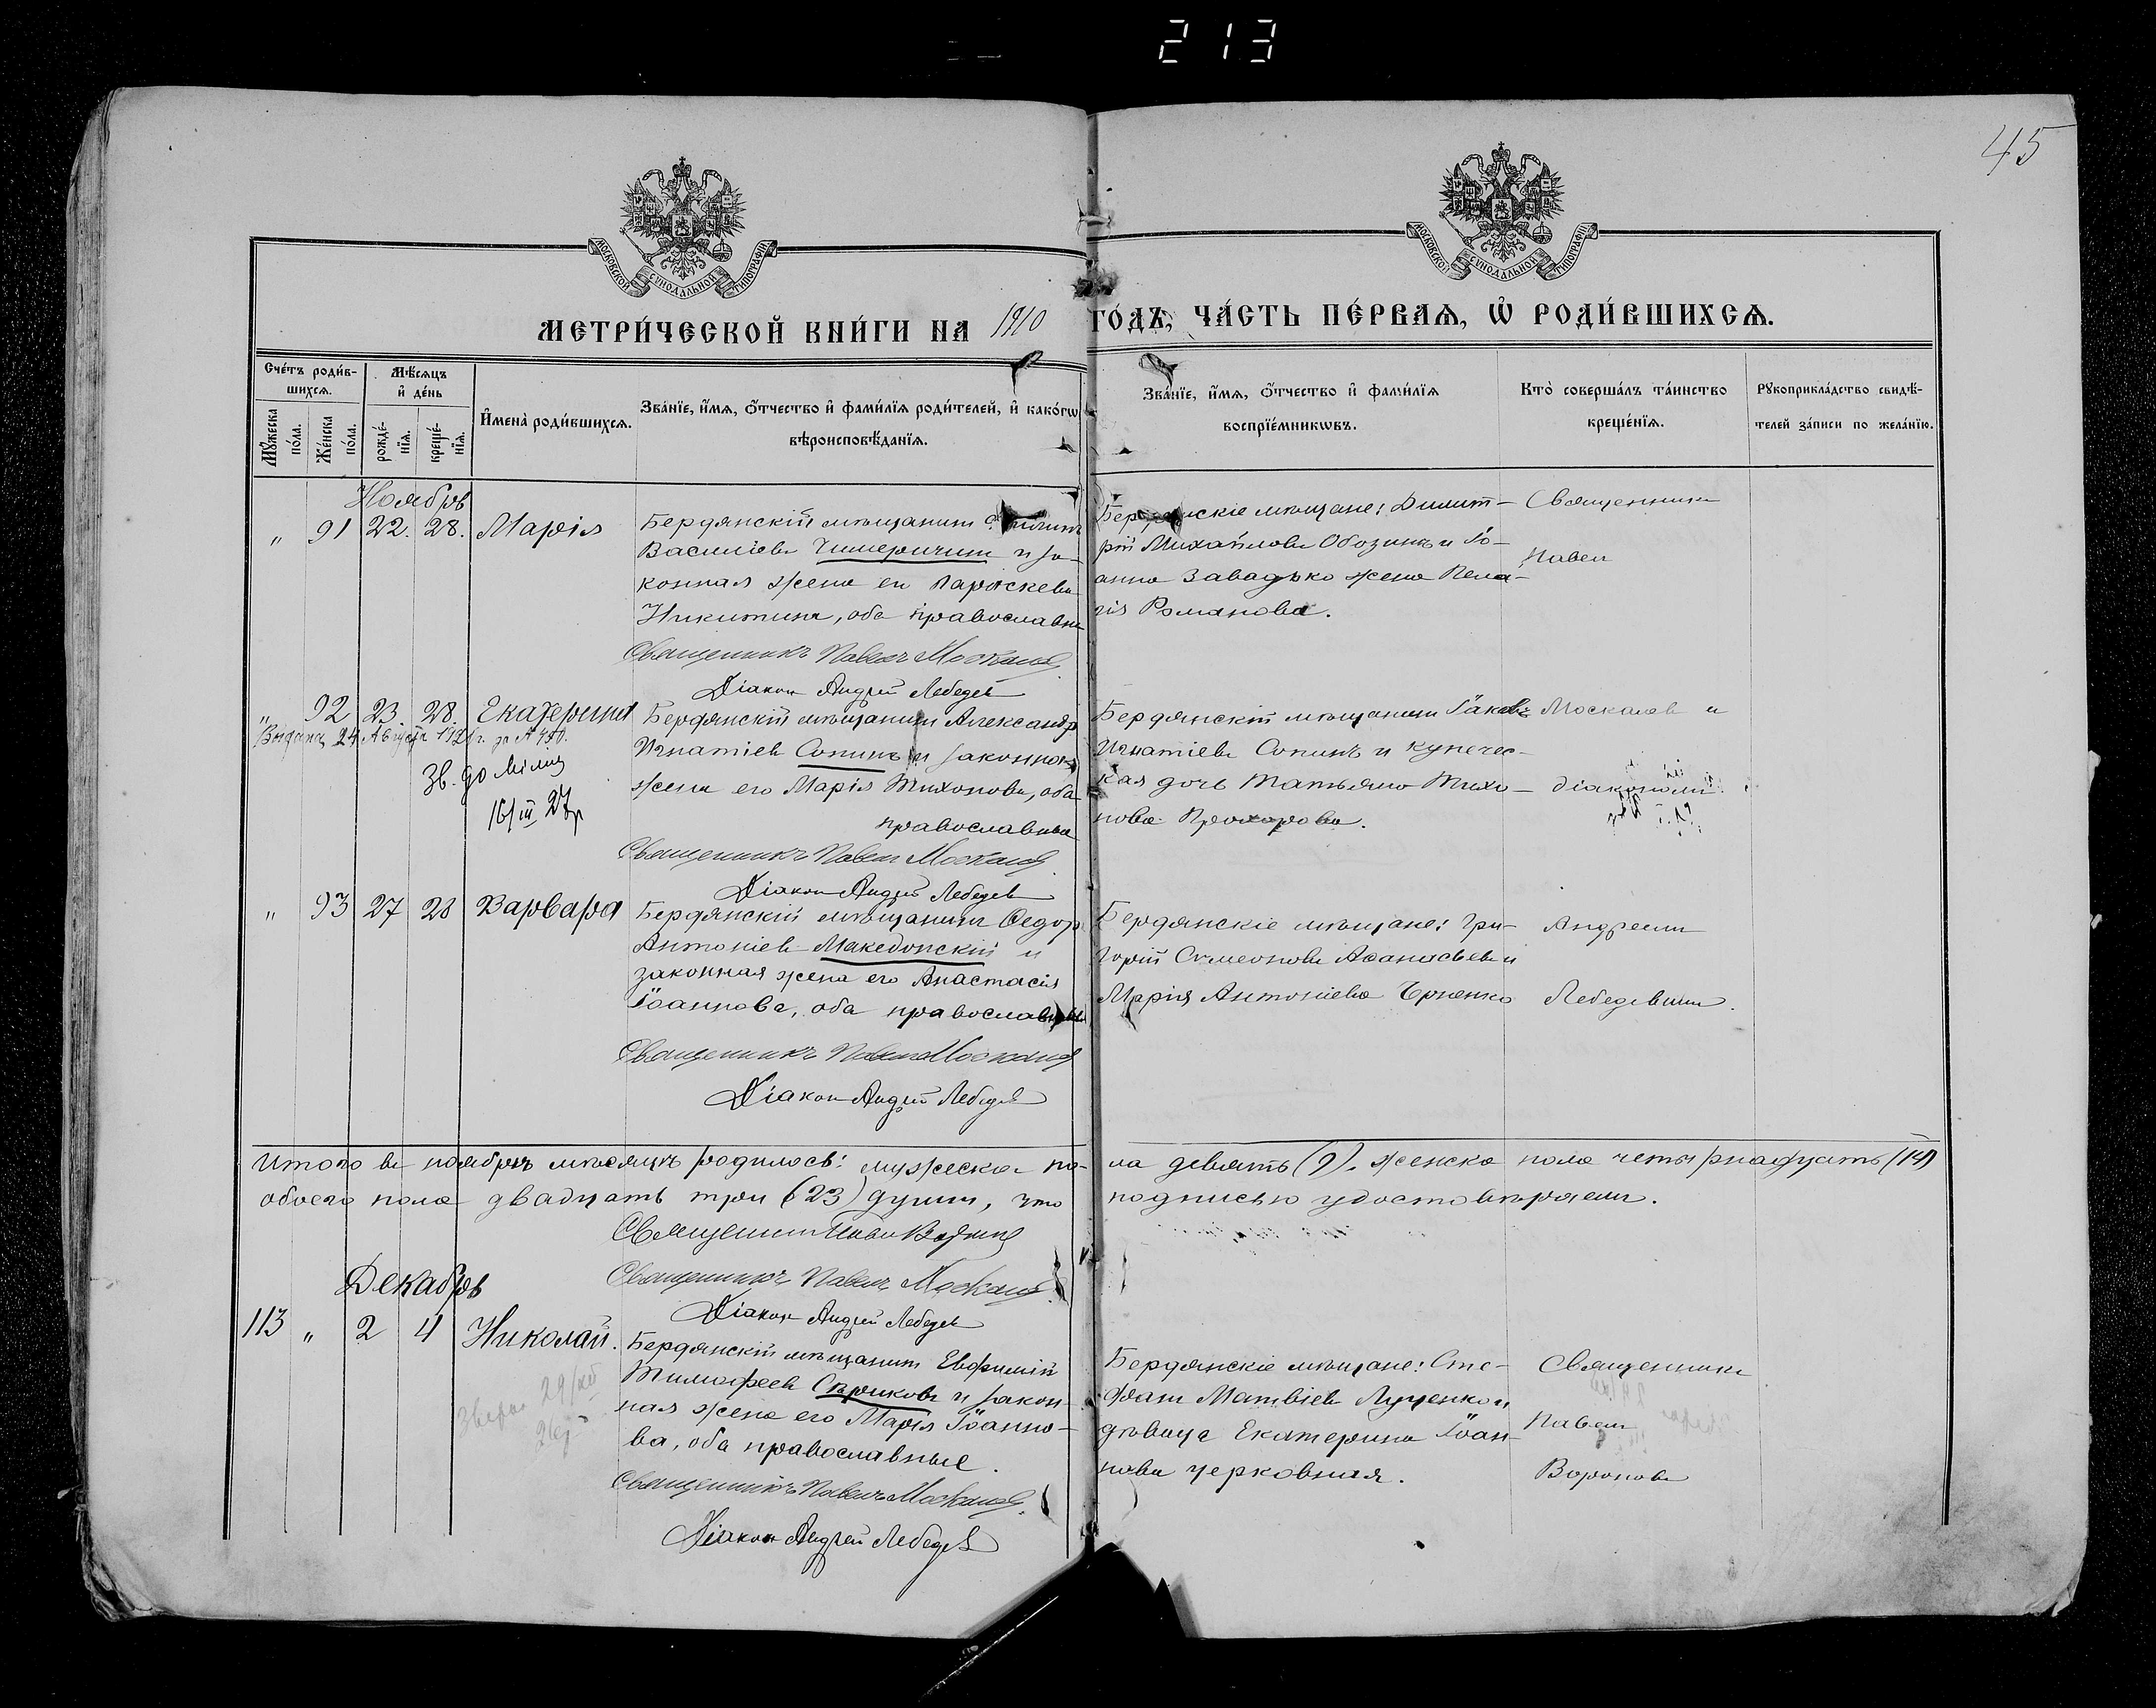 213
45
МОСКОВСКОЙ СУНОДАЛЬНОЙ ТИПОГРАФІИ
МОСКОВСКОЙ СУНОДАЛЬНОЙ ТИПОГРАФІИ
МЕТРИ́ЧЕСКОЙ КНИ́ГИ НА 1910 ГО́ДЪ, ЧА́СТЬ ПЕ́РВАѦ, Ѡ҆ РОДИ́ВШИХСѦ.
Сче́тъ роди́в-
шихсѧ.
Мꙋ́жеска по́ла.
Же́нска по́ла.
Мѣ́сѧцъ
и҆ де́нь
рожде́-нїѧ.
креще́-нїѧ.
И҆мена̀ роди́вшихсѧ.
Зва́нїе, и҆́мѧ, ѻ҆́тчество и҆ фами́лїѧ роди́телей, и҆ како́гѡ
вѣроисповѣ́данїѧ.
Зва́нїе, и҆́мѧ, ѻ҆́тчество и҆ фами́лїѧ
воспрїе́мникѡвъ.
Кто̀ соверша́лъ та́инство
креще́нїѧ.
Рꙋкоприкла́дство свидѣ́-
телей за́писи по жела́нїю.
Ноябрь
" 91 22. 28. Марія
Бердянскій мѣщанинъ
Василіевъ и за-
конная жена его Параскева
Никитина, оба православные
Священникъ Павелъ Москалевъ
Діаконъ Андрей Лебедевъ
Бердянскіе мѣщане: Димит-
рій Михайловъ Обозинъ и Іо-
анна Завадько жена Пела-
гія Романова.
Священникъ
Павелъ
" 92 23. 28. Екатерина
Выдана 24 Августа
Зв. до
16/III 27р
Бердянскій мѣщанинъ Александръ
Игнатіевъ Сопинъ и законная
жена его Марія Тихонова, оба
православные
Священникъ Павелъ Москалевъ
Діаконъ Андрей Лебедевъ
Бердянскій мѣщанинъ Іаковъ
Игнатіевъ Сопинъ и купечес-
кая дочь Татьяна Тихо-
нова Прохорова.
Москалевъ и
діакономъ
" 93 27 28 Варвара
Бердянскій мѣщанинъ Ѳедоръ
Антоніевъ Македонскій и
законная жена его Анастасія
Іоаннова, оба православные
Священникъ Павелъ Москалевъ
Діаконъ Андрей Лебедевъ
Бердянскіе мѣщане: Гри-
горій Симеоновъ Аѳанасьевъ и
Марія Антоніева
Андреемъ
Лебедевымъ.
Итого въ ноябрѣ мѣсяцѣ родилось: мужеска по-
ла девять (9). женска пола четырнадцать (14)
обоего пола двадцать три (23) души, что
подписью удостовѣряемъ.
Священникъ Павелъ
Священникъ Павелъ Москалевъ
Діаконъ Андрей Лебедевъ
Декабрь
113 " 2 4 Николай.
Бердянскій мѣщанинъ Евфимій
Тимофеевъ и закон-
ная жена его Марія Іоанно-
ва, оба православные.
Священникъ Павелъ Москалевъ
Діаконъ Андрей Лебедевъ
Бердянскіе мѣщане: Сте-
фанъ Матвіевъ Луценко и
дѣвица Екатерина Іоан-
нова Церковная.
Священникъ
Павелъ
Вороновъ